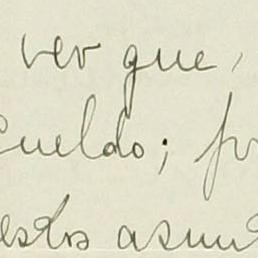 ver que,
sueldo; p
estos asun